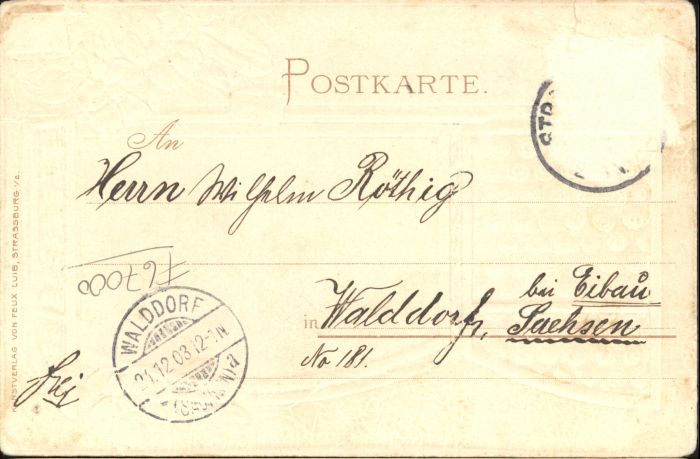 POSTKARTE.
An
Herrn Wilhelm Röthig
in Walddorf,
bei Eibau
Sachsen
No 181.
WALDDORF
21.12.03.
KUNSTVERLAG VON FELIX LUIB, STRASSBURG i/E.
F67000
STRA